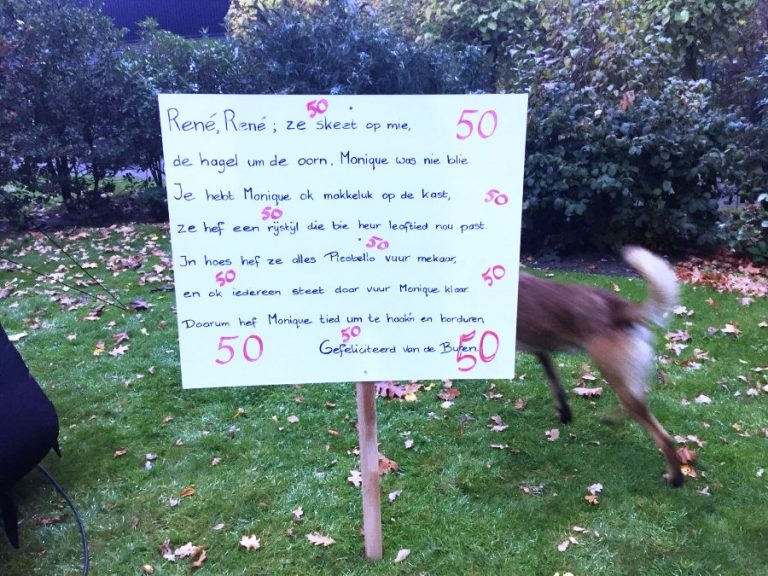 50
René, René; ze skeet op mie, 50
de hagel um de oorn. Monique was nie blie
Je hebt Monique ok makkeluk op de kast, 50
50
ze hef een rijstijl die bie heur leaftied nou past.
50
In hoes hef ze alles Picobello vuur mekaar,
50 50
en ok iedereen steet doar vuur Monique klaar.
Doarum hef Monique tied um te haak'n en borduren,
50 50 50
Gefeliciteerd van de Buren.